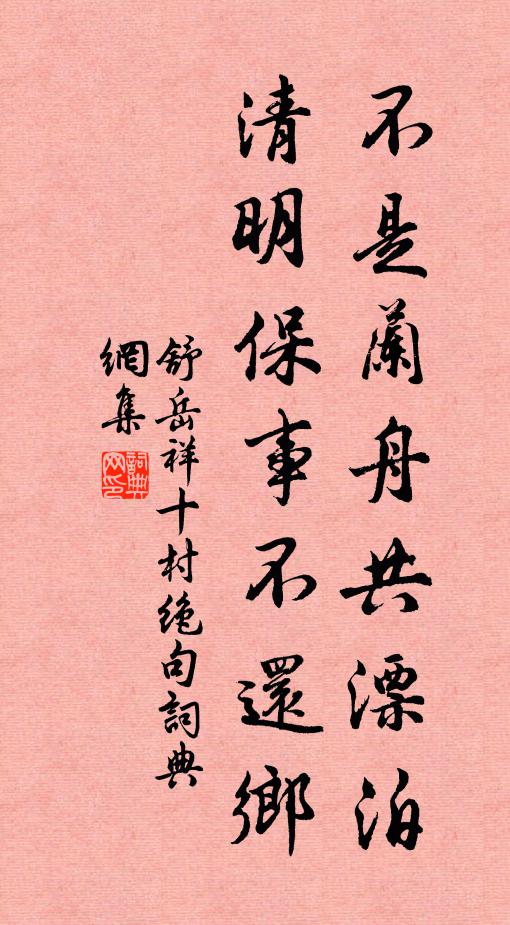 不是蘭舟共漂泊
清明保事不還鄉
舒岳祥十村绝句詞典
網集
詞典网印